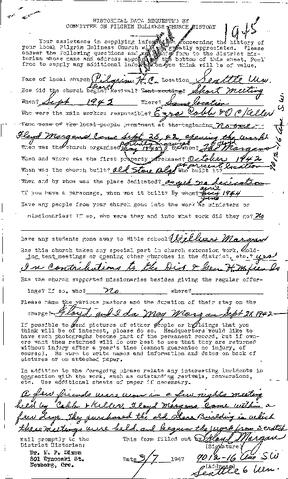 HISTORICAL DATA REQUESTED BY
COMMITTEE ON PILGRIM HOLINESS CHURCH HISTORY
1945
Your assistance in supplying information concerning the history of
your local Pilgrim Holiness Church will be greatly appreciated. Please
answer the following questions and return the form to the district his-
torian whose name and address appears at the bottom of this sheet. Feel
free to supply any additional information you think will be of value.
Name of local church Pilgrim H.C. Location Seattle Wn.
How did the church begin? Revival? Tent meeting? Short Meeting
When? Sept 1942 Where? Same location
Who were the main workers responsible? Ezra Cobb & O. C. Waller
Name some of the local people prominent at the beginning no one
Floyd Morgans Came Sept 26, 42 opening the church
When was the church organized? By whom? The Morgans
When and where was the first property purchased? October 1942
When was the church built? Old Store Bldg Who built it?
When and by whom was the place dedicated? as yet no dedication
If you have a parsonage, when was it built? By whom?
Have any people from your group gone into the work as ministers or
missionaries? If so, who were they and into what work did they go? No
Have any students gone away to Bible school? William Morgan
Has this church taken any special part in church extension work, hold-
ing tent meetings or opening other churches in the district, etc.? yes
In contributions to the Dist & Gen H.M.
Has the church supported missionaries besides giving the regular offer-
ings? If so, who? No where?
Please name the various pastors and the duration of their stay on the
charge. Floyd and Ida May Morgan Sept 28, 1942
If possible to send pictures of either people or buildings that you
think will be of interest, please do so. Headquarters would like to
have such photographs become part of the permanent record, but if own-
ers want them returned will do our best to see that they are returned
without injury after a year's time (cannot guarantee no injury, of
course). Be sure to write names and information and dates on back of
pictures or on attached paper.
In addition to the foregoing please relate any interesting incidents in
connection with the work, such as outstanding revivals, conversions,
etc. Use additional sheets of paper if necessary.
A few friends were won in a few nights meeting
held by Cobb & Waller. Floyd Morgans Came within a
few days. They purchased the old Store Building in which
these meetings were held and began the work from scratch
Mail promptly to the
District Historian:
This form filled out by Floyd Morgan
(Signature)
Dr. W. P. Dixon
Newberg, Ore.
Date 3/7 1947
9012-16 Ave SW
(Address)
Seattle 6 Wn.